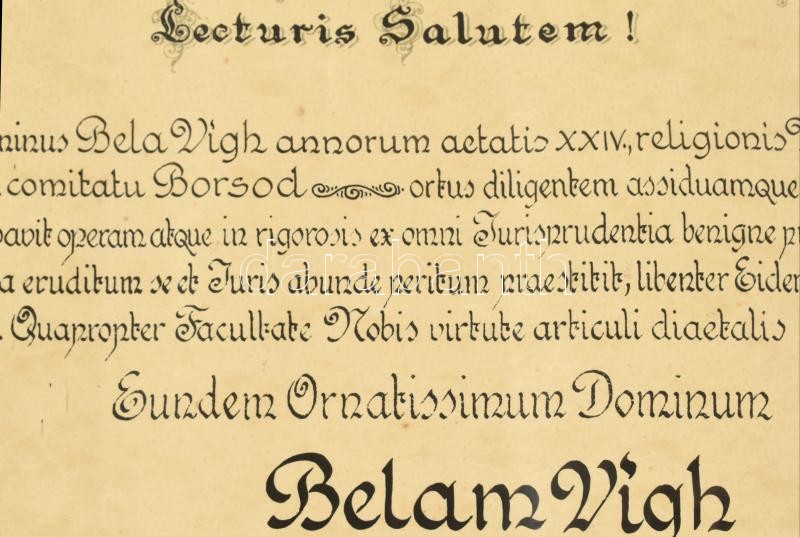 Lecturis Salutem!
minus Bela Vigh annorum aetatis XXIV., religionis
comitatu Borsod ortus diligentem assiduamque
pavit operam atque in rigorosis ex omni Jurisprudentia benigne
a eruditum se et Juris abunde peritum praestitit, libenter Eidem
Quapropter Facultate Nobis virtute articuli diaetalis
Eundem Ornatissimum Dominum
Belam Vigh
darabanth